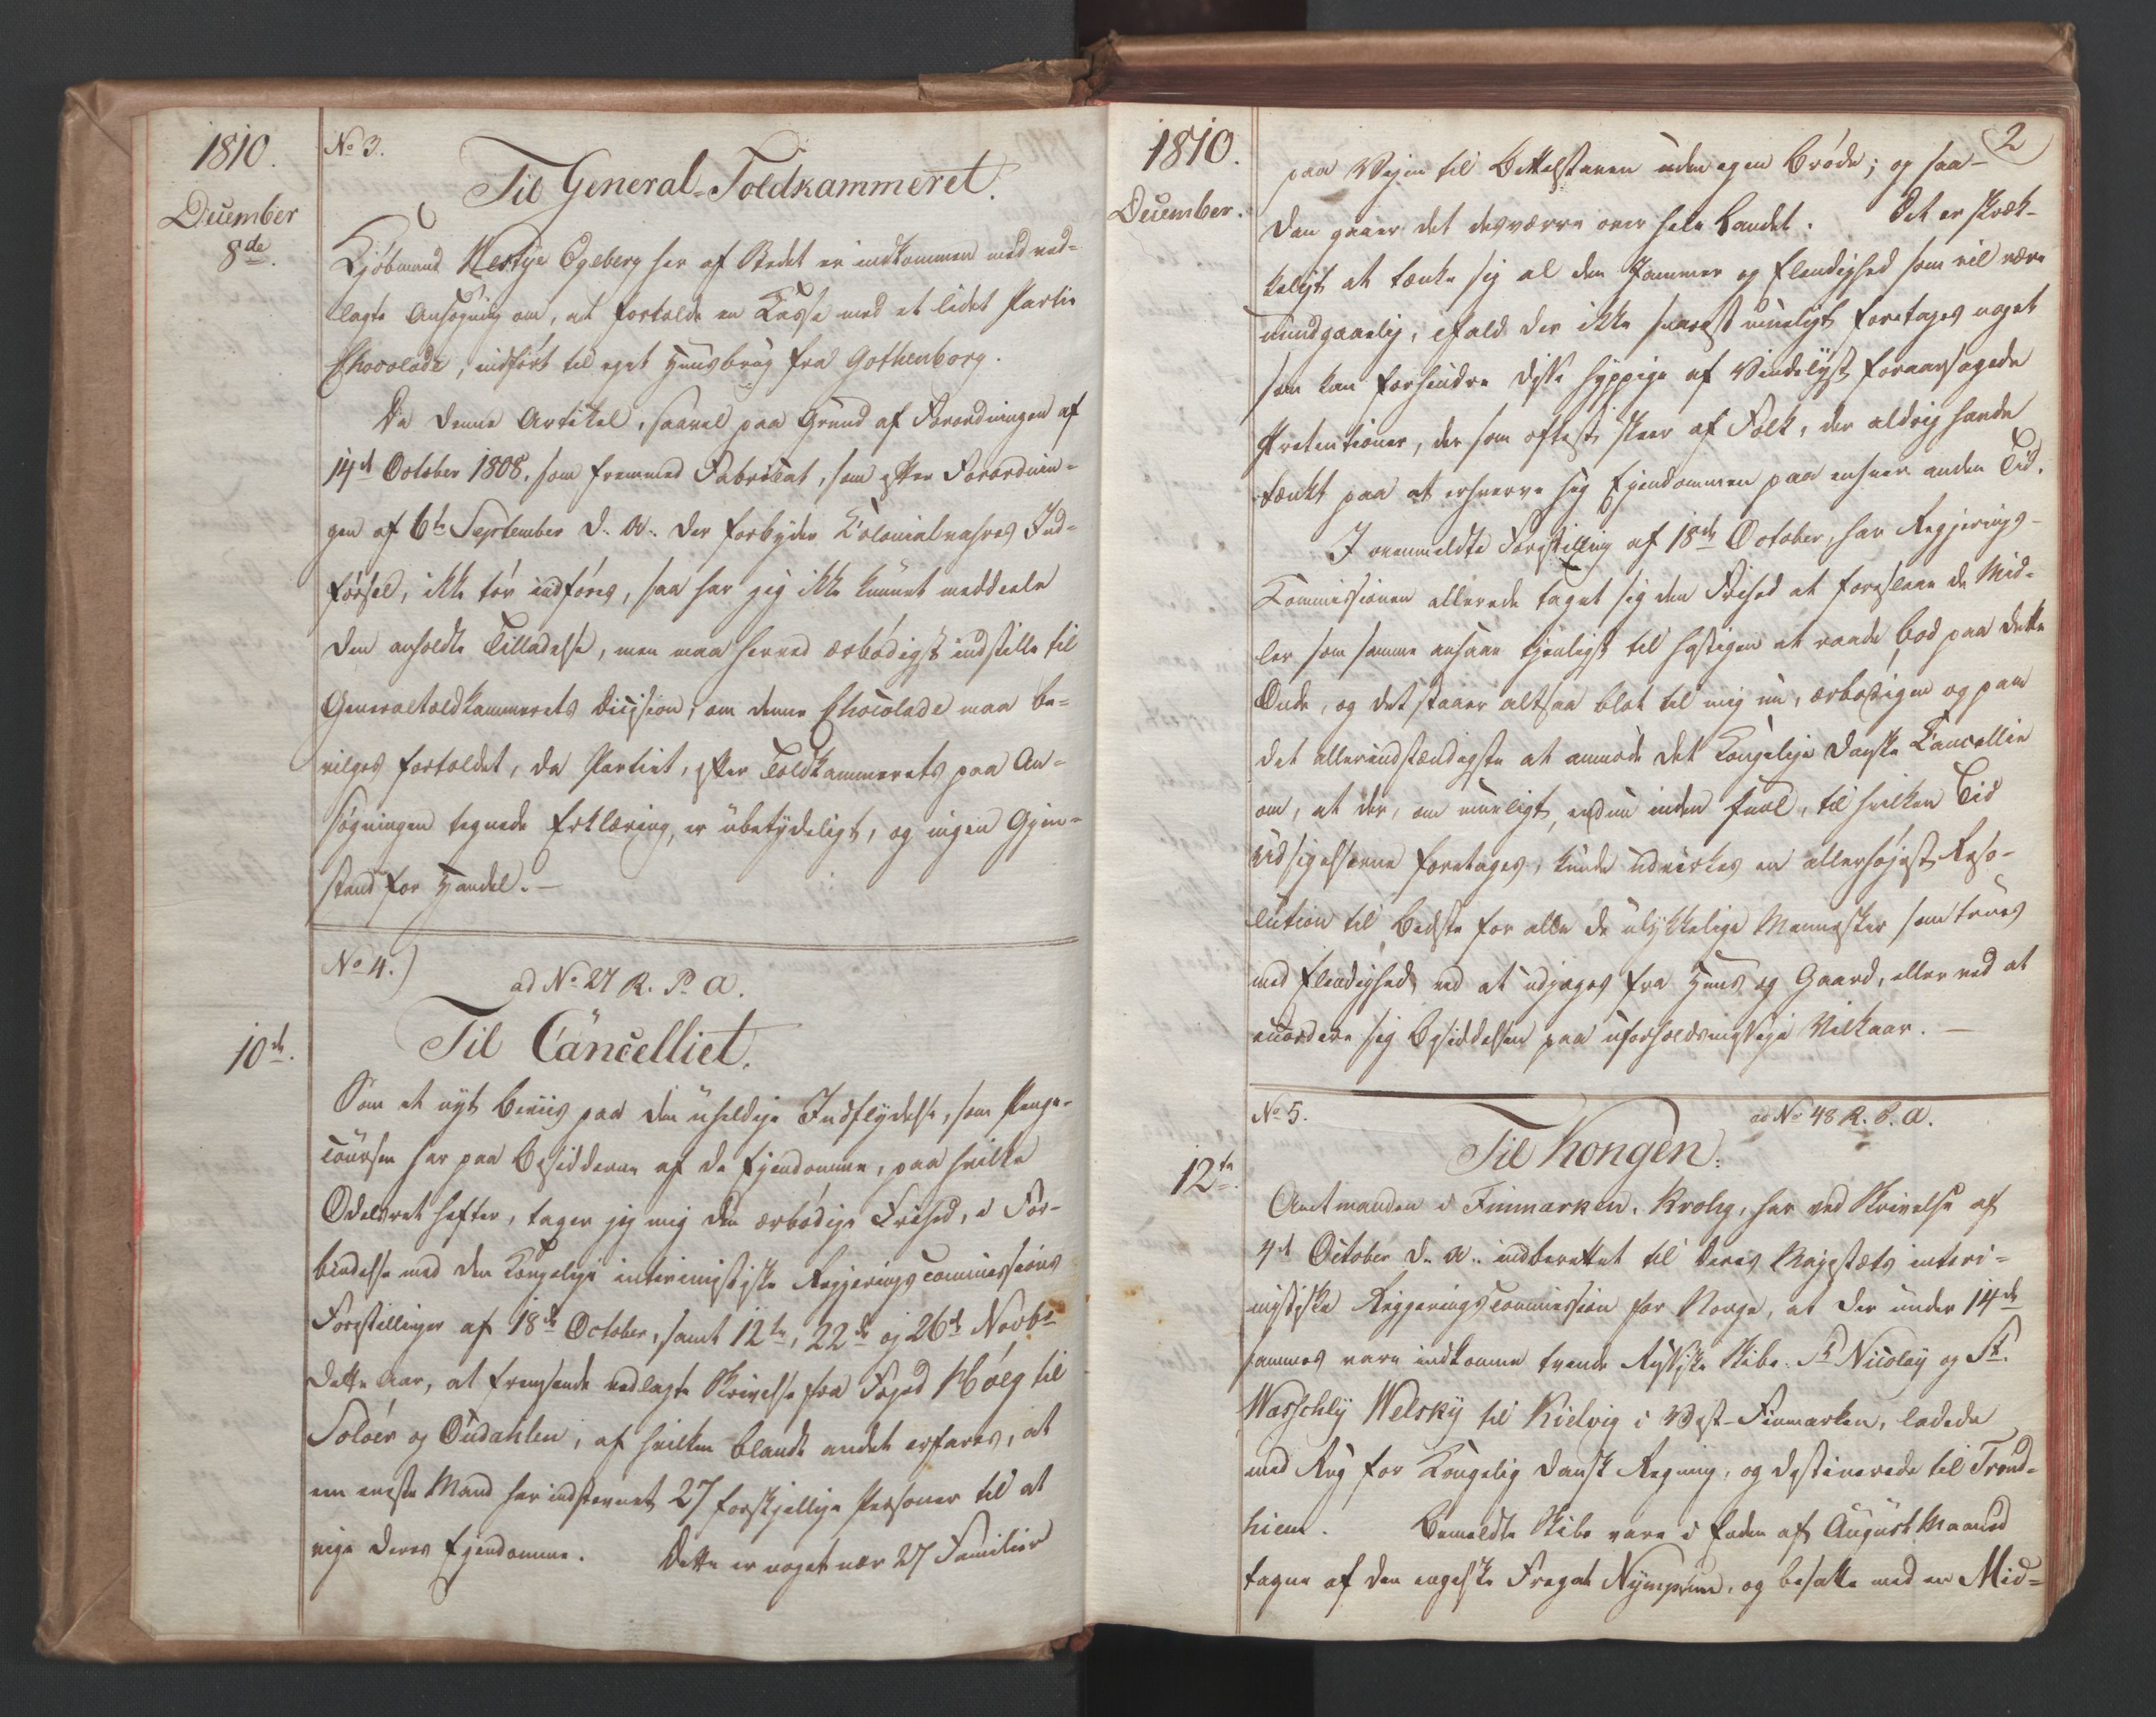 1810.
December
8de.
No 3.
Til General-Toldkammeret.
Kjøbmand Westye Egeberg her af Stedet er indkommen med ved-
lagte Ansøgning om, at fortolde en Kasse med et lidet Partie
Chocolade, indført til eget Huusbrug fra Gothenborg.
Da denne Artikel, saavel paa Grund af Forordningen af
14d October 1808. som fremmed Fabricat, som efter Forordnin-
gen af 6te September d. A. der forbyder Kolonialvahres Ind-
førsel, ikke tør indføres, saa har jeg ikke kunnet meddeele
den anholdte Tilladelse, men maa herved ærbødigst indstille til
Generaltoldkammerets Decision, om denne Chocolade maa be-
vilges fortoldet, da Partiet, efter Toldkammerets paa An-
søgningen tegnede Erklæring, er ubetydeligt, og ingen Gjen-
stand for Handel. —
No 4.)
ad No 27 R. P. A.
Til Cancelliet.
10de.
Som et nyt Beviis paa den uheldige Indflydelse, som Penge-
coursen har paa Besidderne af de Ejendomme, paa hvilke
Odelsret hefter, tager jeg mig den ærbødige Frihed, i For-
bindelse med den Kongelige interimistiske Regjeringscommissions
Forestillinger af 18de October, samt 12te, 22de og 26de Novbr
dette Aar, at fremsende vedlagte Skrivelse fra Foged Høeg til
Soløer og Oudahlen, af hvilken blandt andet erfares, at
een eneste Mand har indstevnet 27 forskjellige Personer til at
vige deres Ejendomme. Dette er noget nær 27 Familier
1810.
December.
2
paa Vejen til Bettelstaven uden egen Brøde; og saa-
dan gaaer det desværre over hele Landet. Det er skræk-
keligt at tænke sig al den Jammer og Elendighed som vil være
uundgaaelig, ifald der ikke snarest mueligt foretages noget
som kan forhindre disse hyppige af Vindelyst foraarsagede
Prætentioner, der som oftest skeer af Folk, der aldrig havde
tænkt paa at erhverve sig Ejendommen paa enhver anden Tid.
I ovenmeldte Forestilling af 18de October, har Regjerings-
Commissionen allerede taget sig den Frihed at foreslaae de Mid-
ler som samme ansaae tjenligst til hastigen at raade Bod paa dette
Onde, og det staaer altsaa blot til mig nu, ærbødigen og paa
det allerindstændigste at anmode det Kongelige Danske Cancellie
om, at der, om mueligt, endnu inden Juul, til hvilken Tid
Udsigelserne foretages, kunde udvirkes en allerhøjest Reso-
lution til Bedste for alle de ulykkelige Mennesker som trues
med Elendighed ved at udjages fra Huus og Gaard, eller ved at
accordere sig Besiddelsen paa uforholdsmessige Vilkaar. —
No 5.
ad No 48 R. P. A.
Til Kongen.
12te.
Amtmanden i Finmarken, Krohg, har ved Skrivelse af
4d October d. A. indberettet til Deres Majestæts interi-
mistiske Regjeringscommission for Norge, at der under 14de
sammes vare indkomne tvende Russiske Skibe St Nicolay og St.
Wasschly Welsky til Kielvig i Vest-Finmarken, ladede
med Rug for Kongelig Dansk Regning, og destinerede til Trond-
hiem. Bemeldte Skibe vare i Enden af August Maaned
tagne af den engelske Fregat Nymphene, og besatte med en Mid-